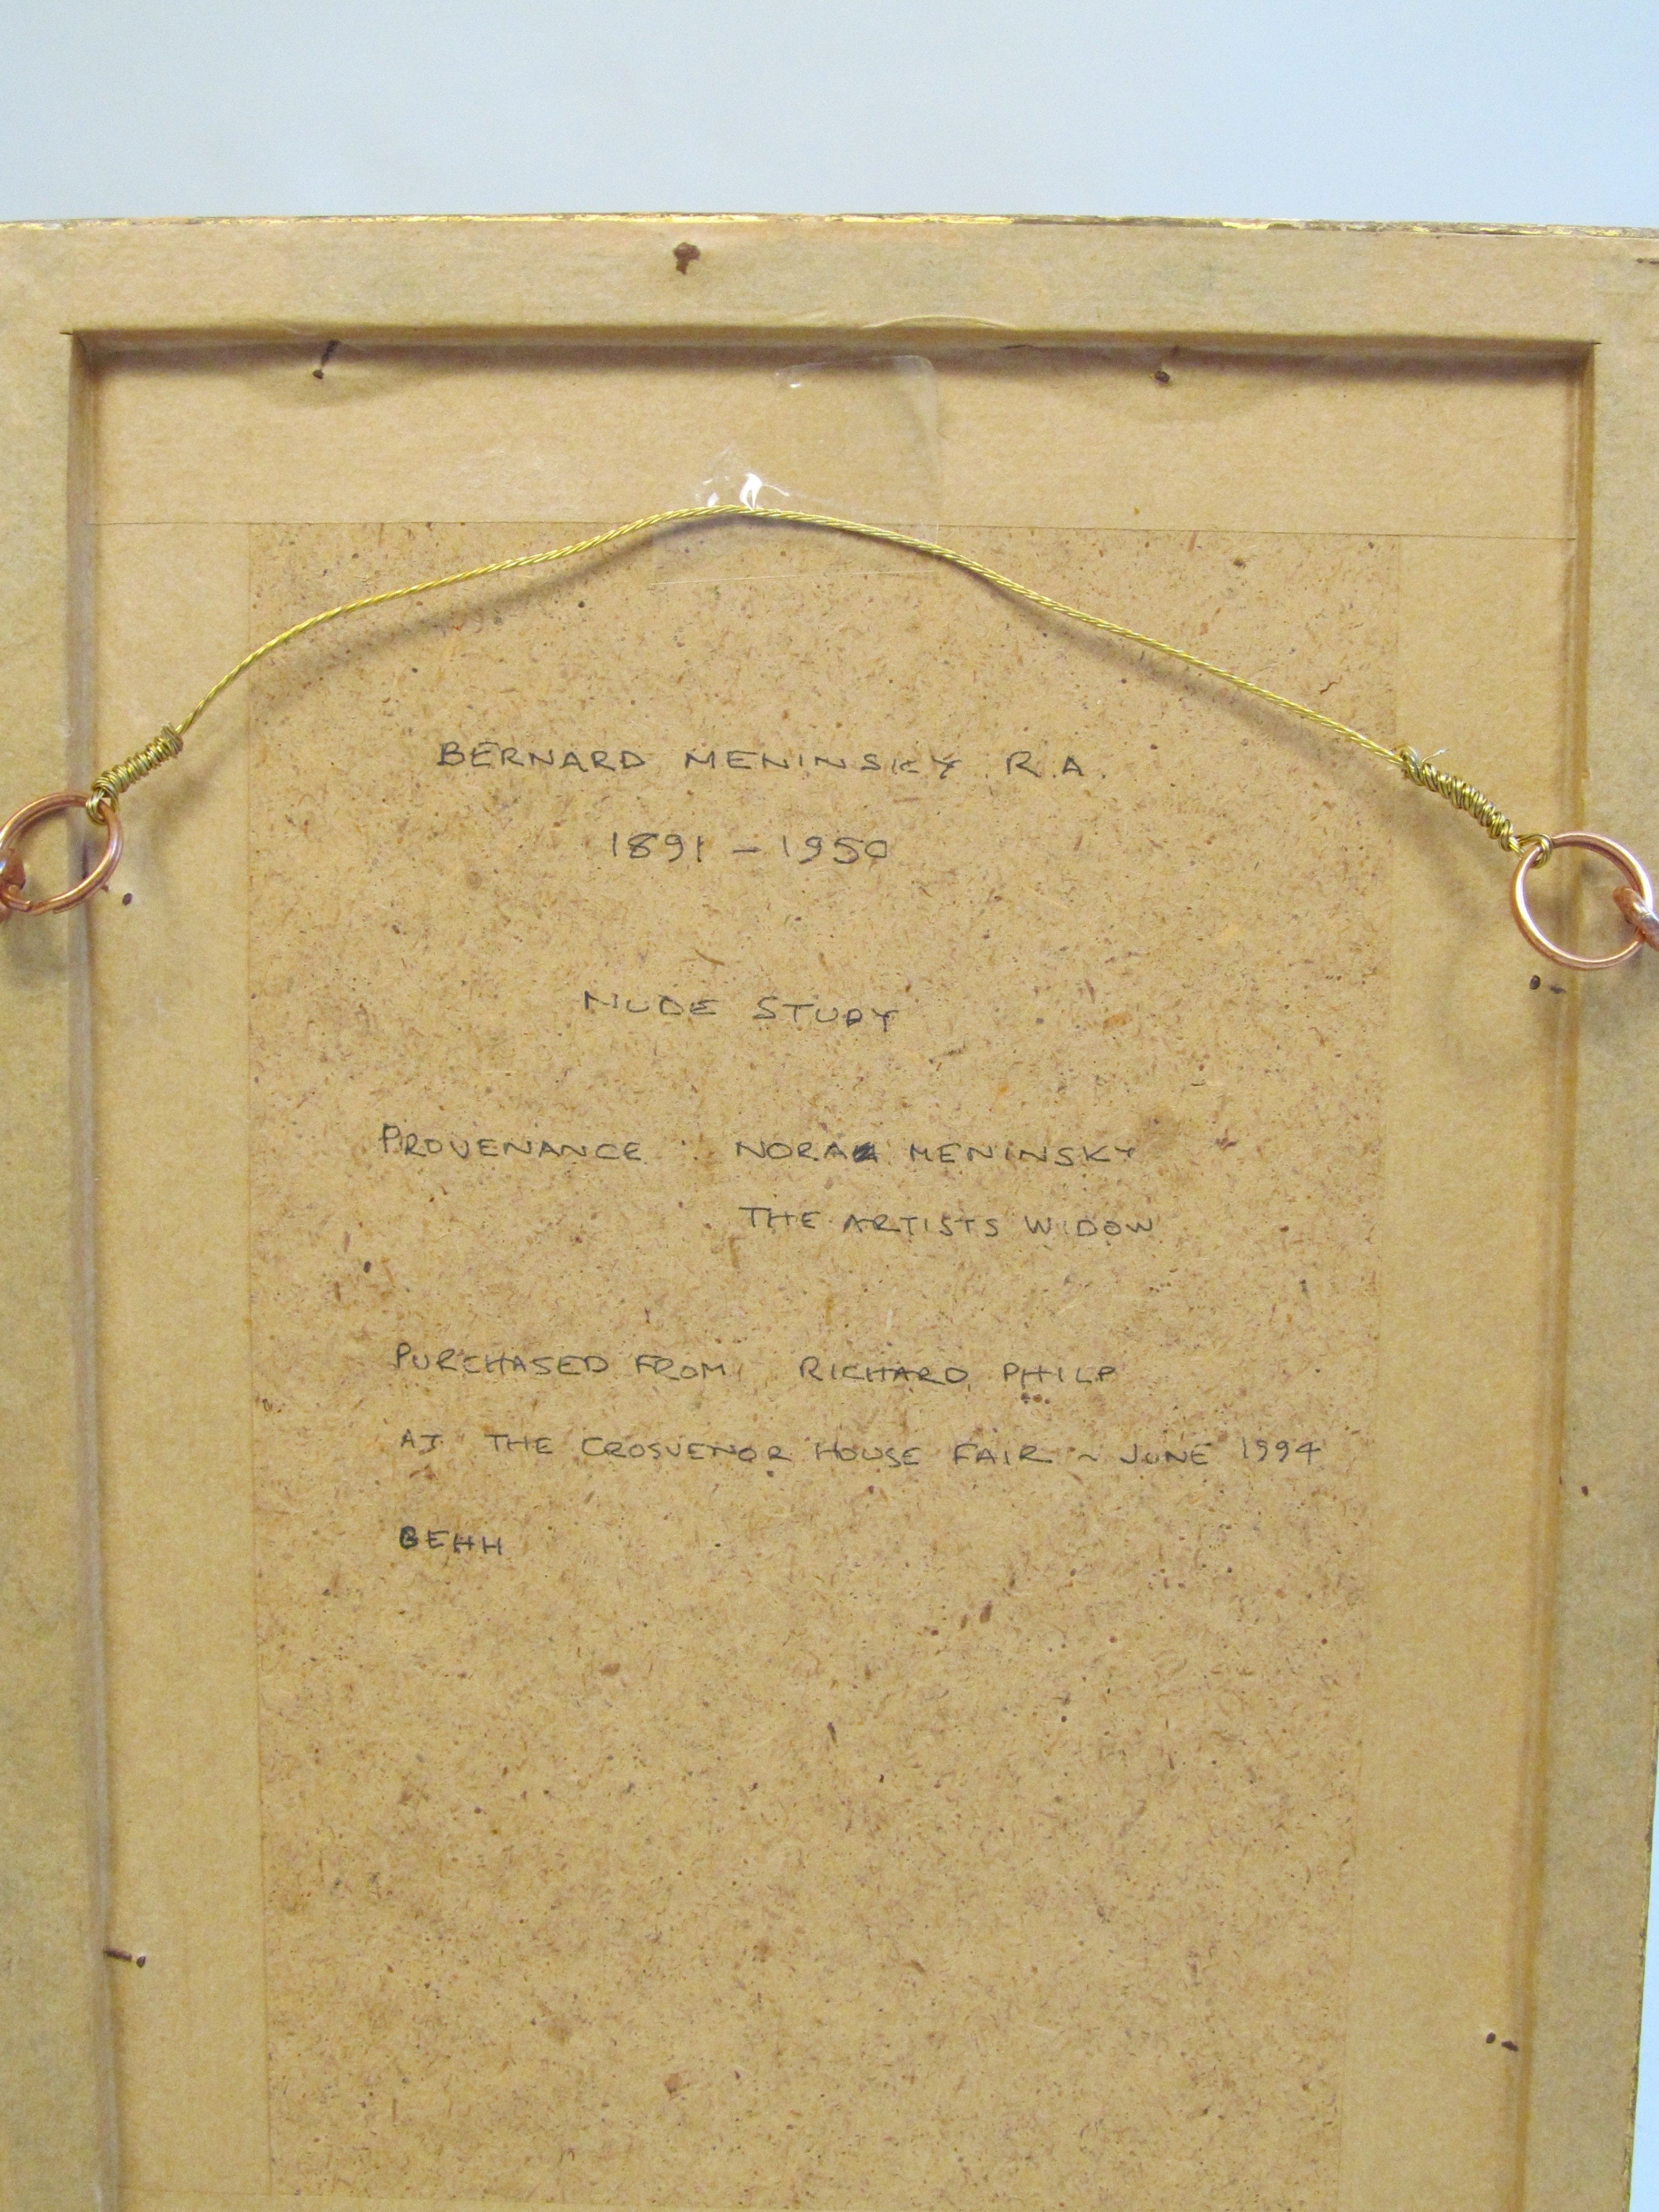 BERNARD MENINSKY R.A.
1891 – 1950
NUDE STUDY
PROVENANCE : NORA MENINSKY
THE ARTISTS WIDOW
PURCHASED FROM RICHARD PHILP
AT THE GROSVENOR HOUSE FAIR ~ JUNE 1994
BEHH